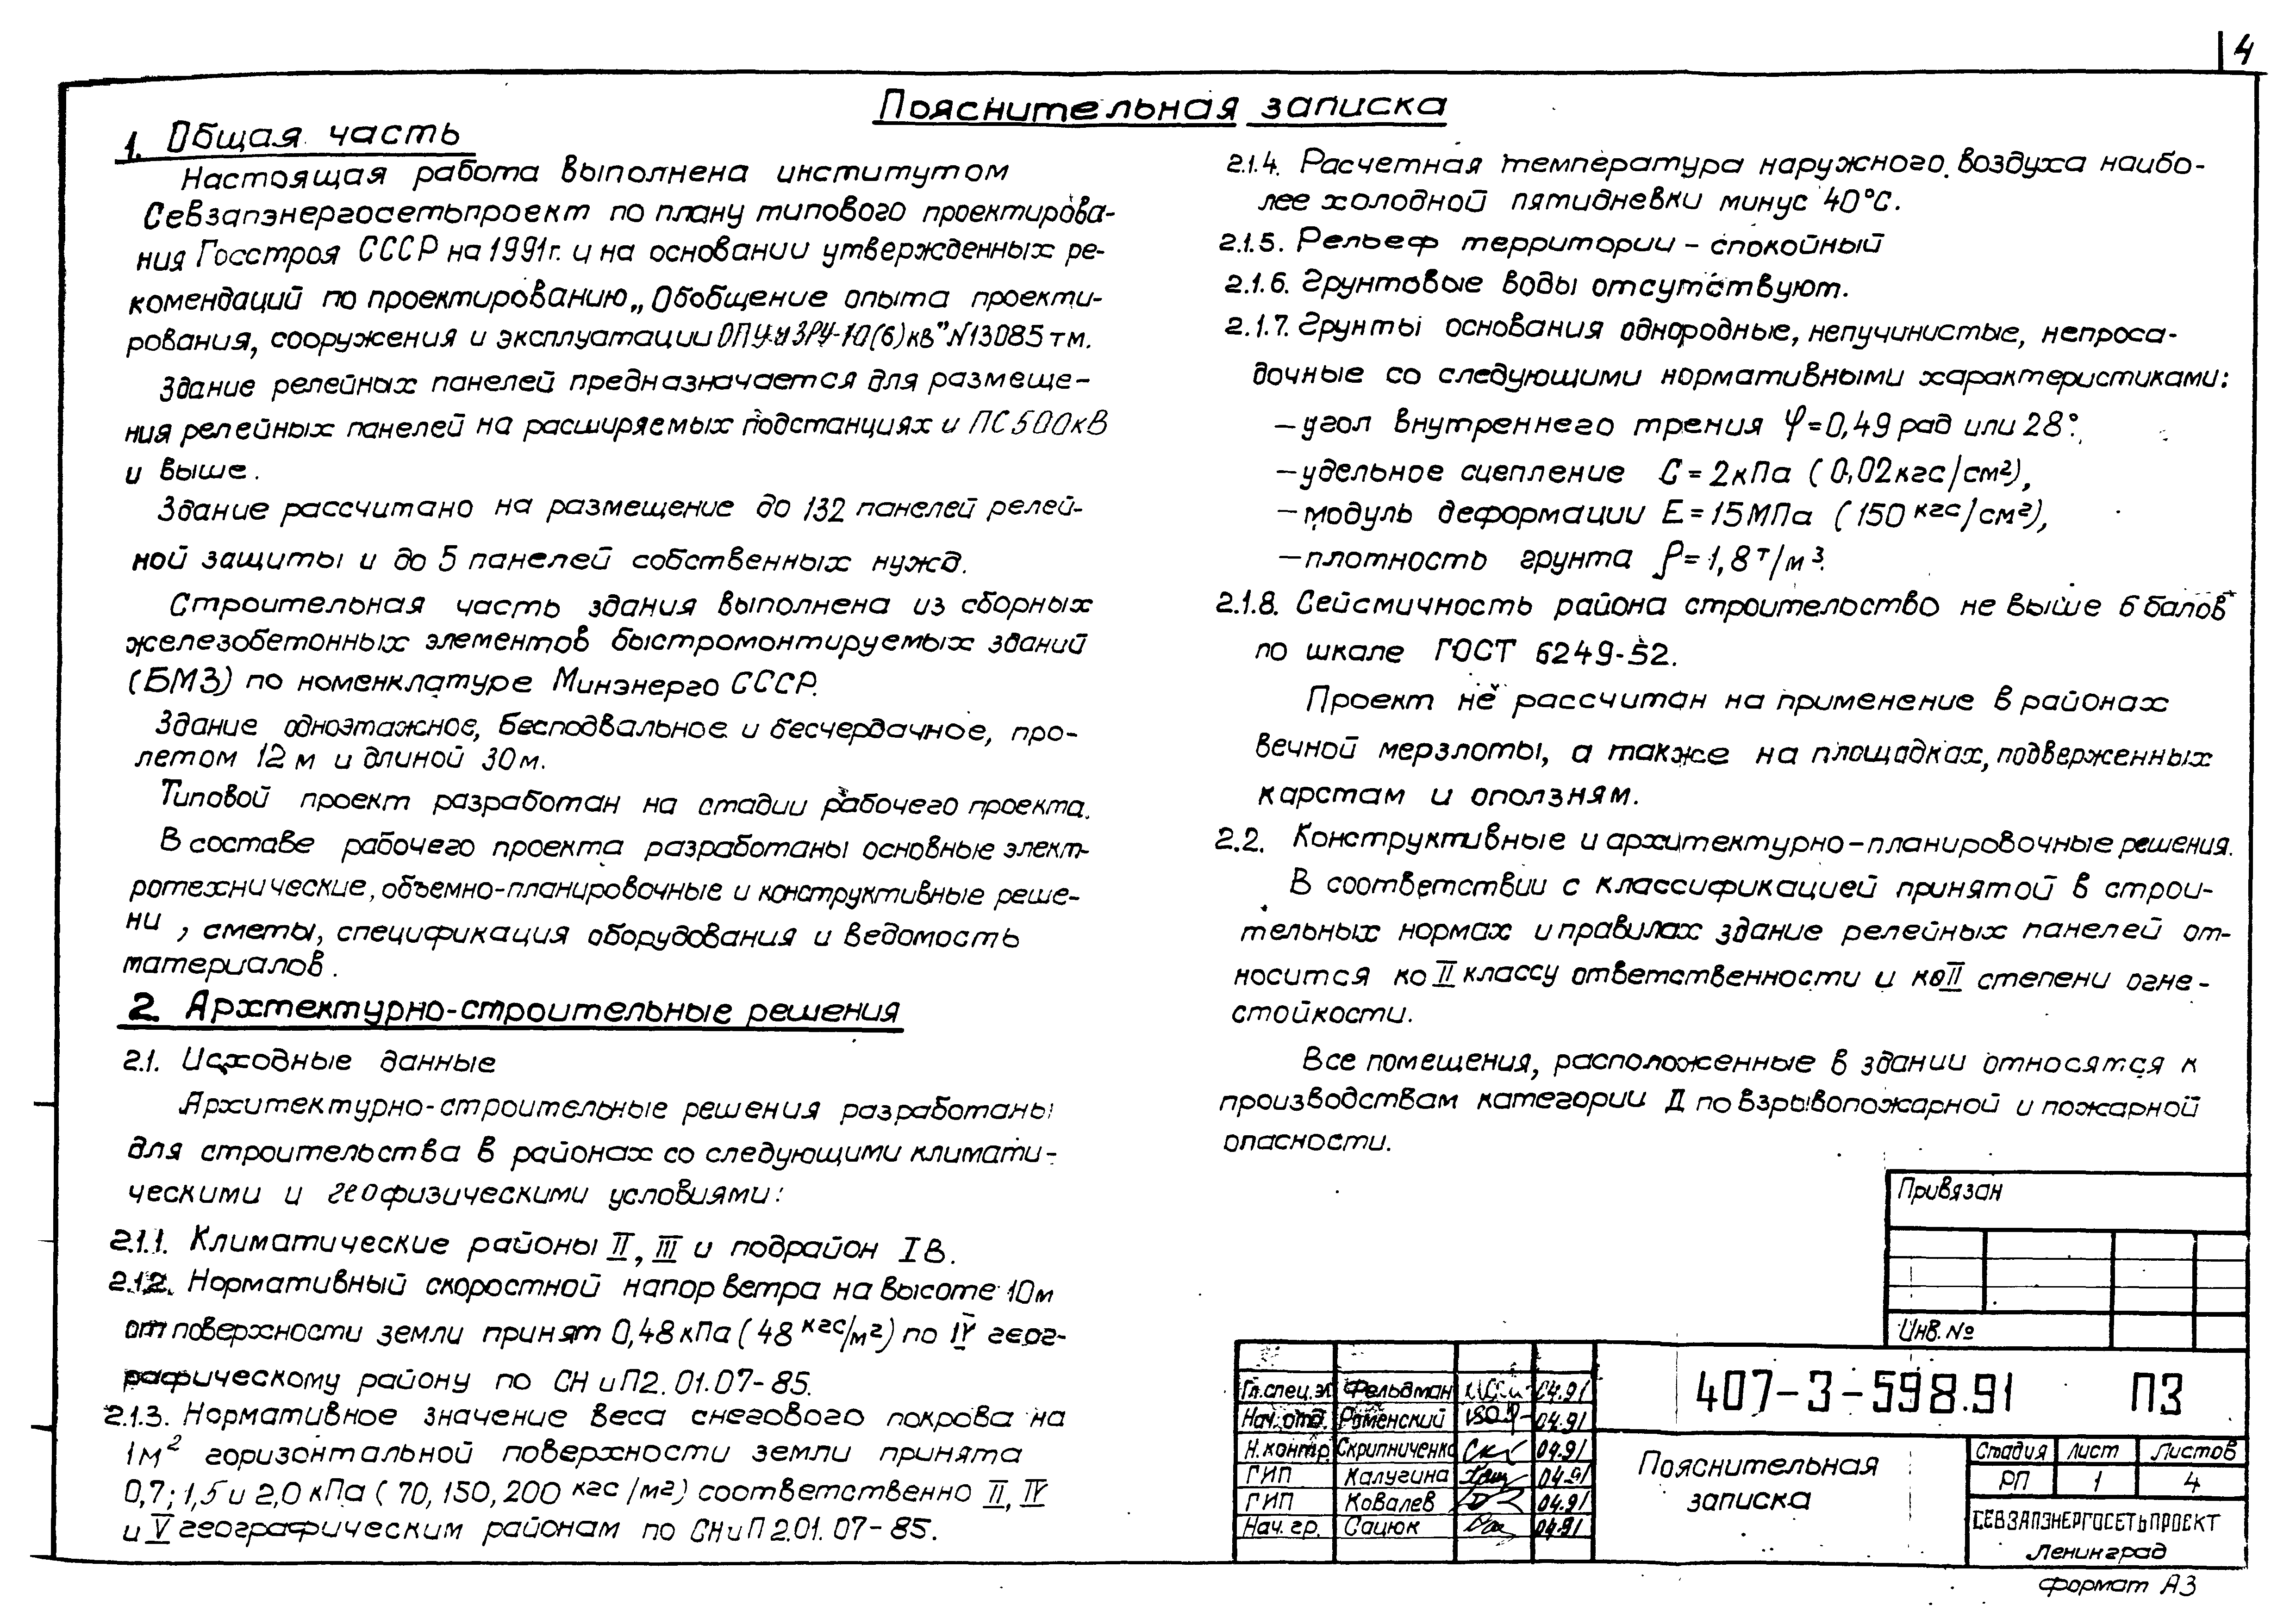 4
Пояснительная записка
1. Общая часть
Настоящая работа выполнена институтом
Севзапэнергосетьпроект по плану типового проектирова-
ния Госстроя СССР на 1991г. и на основании утвержденных ре-
комендаций по проектированию „Обобщение опыта проекти-
рования, сооружения и эксплуатации ОПУ и ЗРУ-10(6)кв" N13085тм.
Здание релейных панелей предназначается для размеще-
ния релейных панелей на расширяемых подстанциях и ПС 500кВ
и выше.
Здание рассчитано на размещение до 132 панелей релей-
ной защиты и до 5 панелей собственных нужд.
Строительная часть здания выполнена из сборных
железобетонных элементов быстромонтируемых зданий
(БМЗ) по номенклатуре Минэнерго СССР.
Здание одноэтажное, бесподвальное и бесчердачное, про-
летом 12 м и длиной 30м.
Типовой проект разработан на стадии рабочего проекта.
В составе рабочего проекта разработаны основные элект-
ротехнические, объемно-планировочные и конструктивные реше-
ни, сметы, спецификация оборудования и ведомость
материалов.
2. Архтектурно-строительные решения
2.1. Исходные данные
Архитектурно-строительные решения разработаны
для строительства в районах со следующими климати-
ческими и геофизическими условиями:
2.1.1. Климатические районы II, III и подрайон IВ.
2.1.2. Нормативный скоростной напор ветра на высоте 10м
от поверхности земли принят 0,48 кПа (48 кгс/м2) по IV геог-
рафическому району по СН и П2.01.07-85.
2.1.3. Нормативное значение веса снегового покрова на
1м2 горизонтальной поверхности земли принята
0,7; 1,5 и 2,0 кПа (70, 150, 200 кгс/м2) соответственно II, IV
и V географическим районам по СН и П 2.01.07-85.
2.1.4. Расчетная температура наружного воздуха наибо-
лее холодной пятидневки минус 40°С.
2.1.5. Рельеф территории - спокойный
2.1.6. Грунтовые воды отсутствуют.
2.1.7. Грунты основания однородные, непучинистые, непроса-
дочные со следующими нормативными характеристиками:
—угол внутреннего трения φ=0,49 рад или 28°,
—удельное сцепление С=2кПа (0,02кгс/см2),
—модуль деформации Е=15МПа (150 кгс/см2),
—плотность грунта ρ=1,8 т/м3.
2.1.8. Сейсмичность района строительство не выше 6 балов
по шкале ГОСТ 6249-52.
Проект не рассчитан на применение в районах
вечной мерзлоты, а также на площадках, подверженных
карстам и оползням.
2.2. Конструктивные и архитектурно-планировочные решения.
В соответствии с классификацией принятой в строи-
тельных нормах и правилах здание релейных панелей от-
носится ко II классу ответственности и ко II степени огне-
стойкости.
Все помещения, расположенные в здании относятся к
производствам категории Д по взрывопожарной и пожарной
опасности.
Привязан
Инв. №
Гл.спец.эл Фельдман 04.91
Нач. отд. Роменский 04.91
Н.контр. Скрипниченко 04.91
ГИП Калугина 04.91
ГИП Ковалев 04.91
Нач. гр. Сацюк 04.91
407-3-598.91 ПЗ
Пояснительная
записка
Стадия Лист Листов
РП 1 4
СЕВЗАПЭНЕРГОСЕТЬПРОЕКТ
Ленинград
формат А3